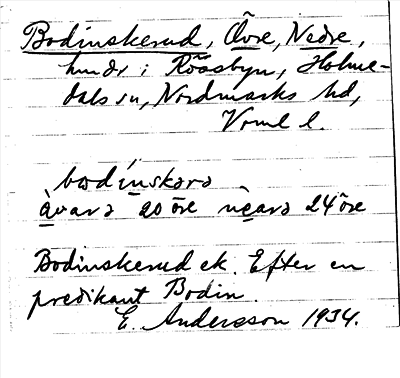 Bodinskerud, Övre, Nedre,
hmdr i Röåsbyn, Holme-
dals sn, Nordmarks hd,
Vrml l.
bodínskərə
àvərə 20 öre nèərə 24 öre
Bodinskerud ek. Efter en
predikant Bodin.
E. Andersson 1934.